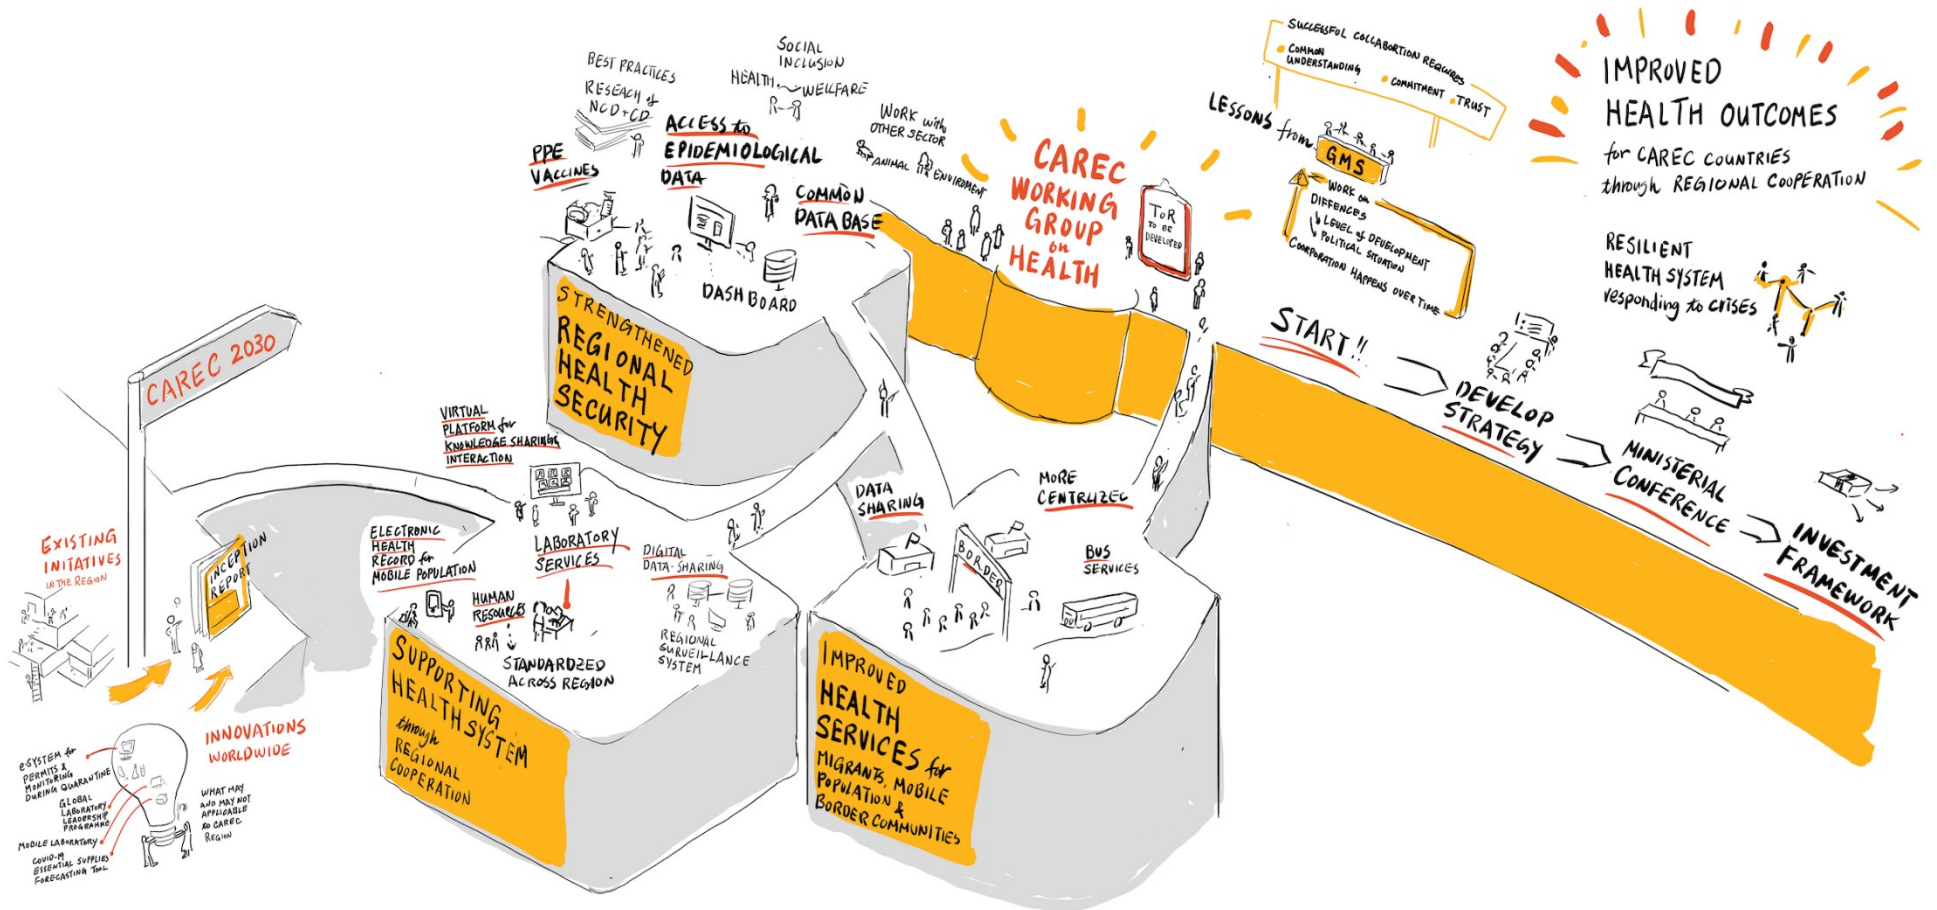 CAREC 2030
EXISTING
INITATIVES
IN THE REGION
INCEPTION
REPORT
INNOVATIONS
WORLDWIDE
e-SYSTEM for
PERMITS &
MONITORING
DURING QUARANTINE
GLOBAL
LABORATORY
LEADERSHIP
PROGRAMME
MOBILE LABORATORY
COVID-19
ESSENTIAL SUPPLIES
FORECASTING TOOL
WHAT MAY
AND MAY NOT
APPLICABLE
to CAREC
REGION
VIRTUAL
PLATFORM for
KNOWLEDGE SHARING &
INTERACTION
ELECTRONIC
HEALTH
RECORD for
MOBILE POPULATION
LABORATORY
SERVICES
HUMAN
RESOURCES
STANDARDZED
ACROSS REGION
DIGITAL
DATA-SHARING
REGIONAL
SURVEILLANCE
SYSTEM
SUPPORTING
HEALTH SYSTEM
through
REGIONAL
COOPERATION
BEST PRACTICES
RESEACH of
NCD+CD
SOCIAL
INCLUSION
HEALTH
WELLFARE
PPE
VACCINES
ACCESS to
EPIDEMIOLOGICAL
DATA
WORK with
OTHER SECTOR
ANIMAL
ENVIROMENT
COMMON
DATA BASE
DASHBOARD
STRENGTHENED
REGIONAL
HEALTH
SECURITY
DATA
SHARING
MORE
CENTRLIZEC
BORDER
BUS
SERVICES
IMPROVED
HEALTH
SERVICES for
MIGRANTS, MOBILE
POPULATION &
BORDER COMMUNITIES
CAREC
WORKING
GROUP
on
HEALTH
ToR
TO BE
DEVELOPED
SUCCESSFUL COLLABORTION REQUIRES
COMMON
UNDERSTANDING
COMMITMENT
TRUST
LESSONS from
GMS
WORK on
DIFFENCES
LEVEL of DEVELOPMENT
POLITICAL SITUATION
COORPORATION HAPPENS OVER TIME
START!!
DEVELOP
STRATEGY
MINISTERIAL
CONFERENCE
INVESTMENT
FRAMEWORK
IMPROVED
HEALTH OUTCOMES
for CAREC COUNTRIES
through REGIONAL COOPERATION
RESILIENT
HEALTH SYSTEM
responding to crises